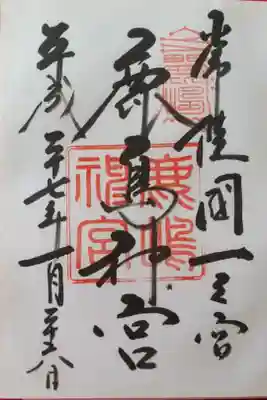 常陸國一之宮
鹿島神宮
平成二十七年一月二十八日
鹿嶋
神宮